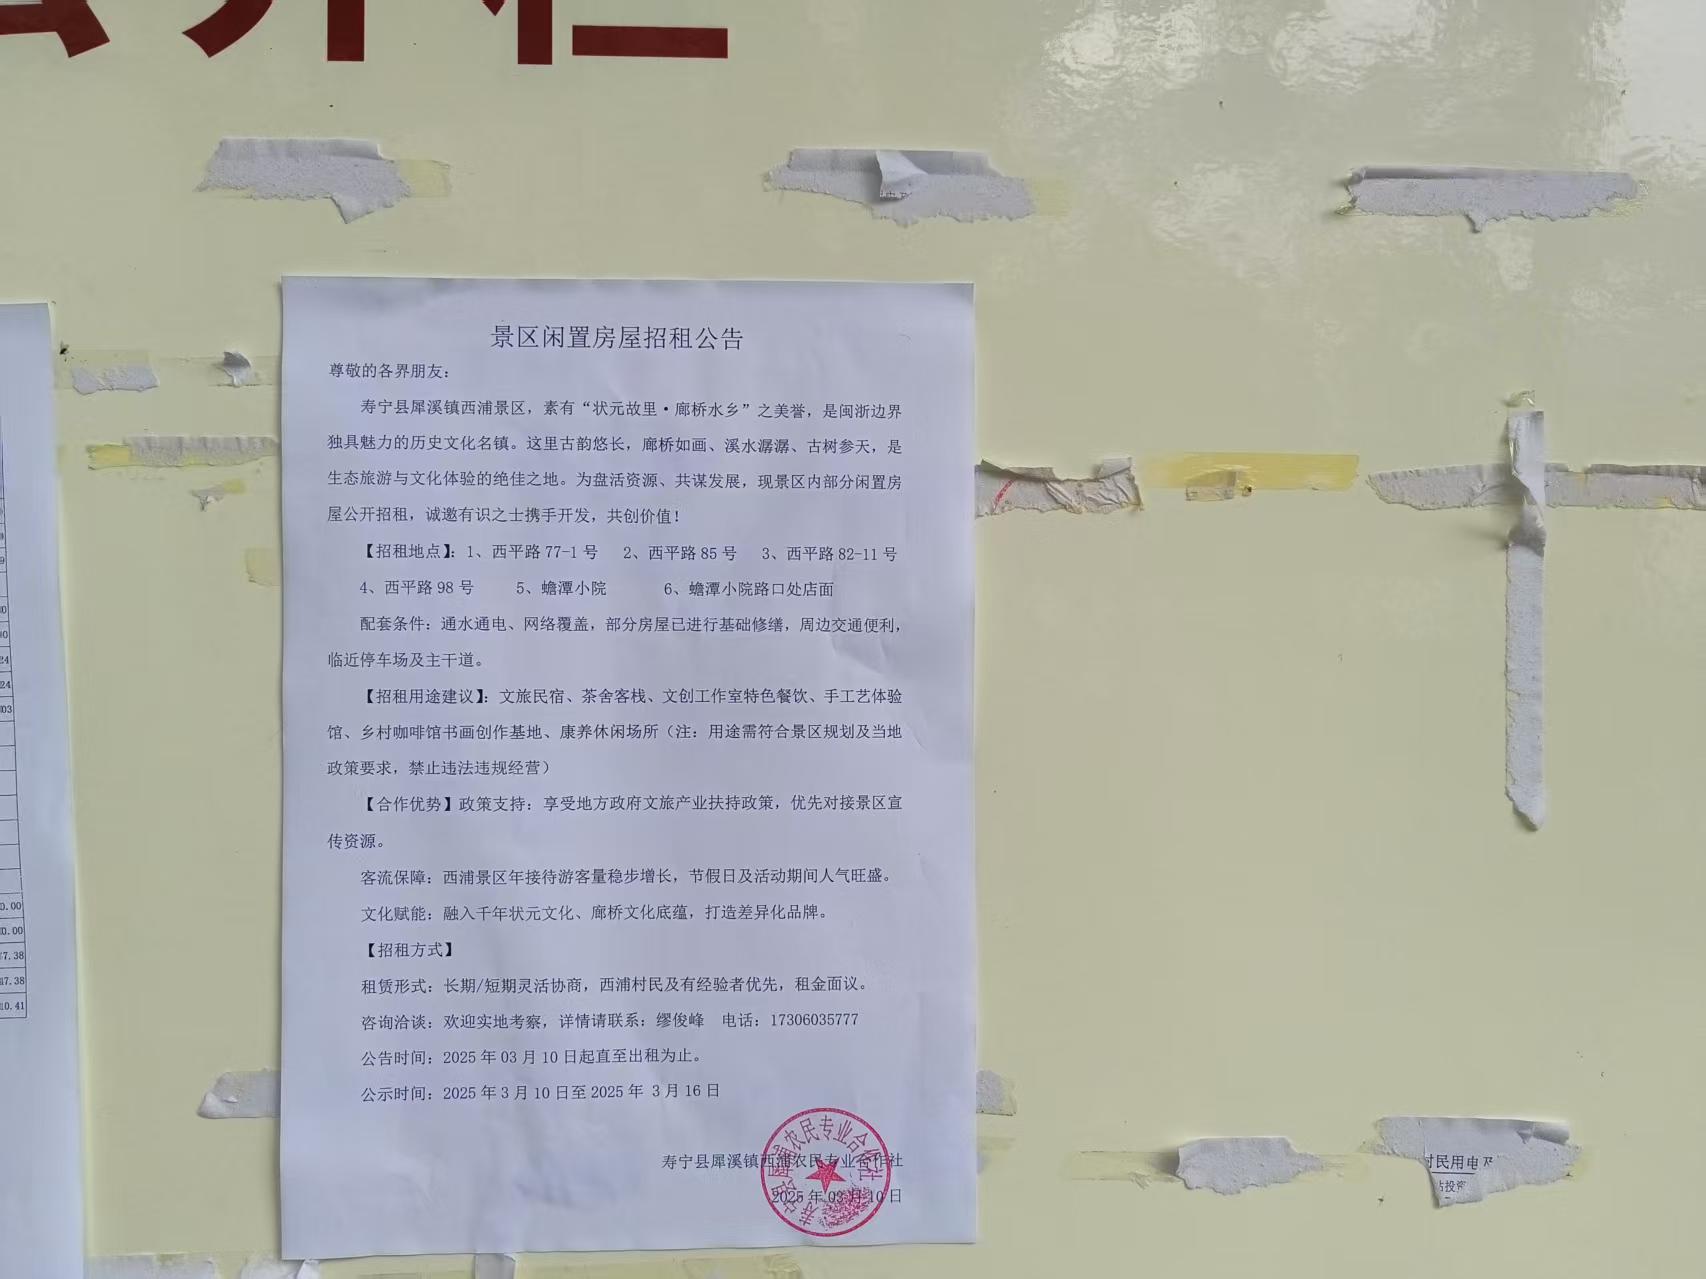 公开栏
景区闲置房屋招租公告
尊敬的各界朋友：
寿宁县犀溪镇西浦景区，素有“状元故里·廊桥水乡”之美誉，是闽浙边界
独具魅力的历史文化名镇。这里古韵悠长，廊桥如画、溪水潺潺、古树参天，是
生态旅游与文化体验的绝佳之地。为盘活资源、共谋发展，现景区内部分闲置房
屋公开招租，诚邀有识之士携手开发，共创价值！
【招租地点】：1、西平路 77-1 号 2、西平路 85 号 3、西平路 82-11 号
4、西平路 98 号 5、蟾潭小院 6、蟾潭小院路口处店面
配套条件：通水通电、网络覆盖，部分房屋已进行基础修缮，周边交通便利，
临近停车场及主干道。
【招租用途建议】：文旅民宿、茶舍客栈、文创工作室特色餐饮、手工艺体验
馆、乡村咖啡馆书画创作基地、康养休闲场所（注：用途需符合景区规划及当地
政策要求，禁止违法违规经营）
【合作优势】政策支持：享受地方政府文旅产业扶持政策，优先对接景区宣
传资源。
客流保障：西浦景区年接待游客量稳步增长，节假日及活动期间人气旺盛。
文化赋能：融入千年状元文化、廊桥文化底蕴，打造差异化品牌。
【招租方式】
租赁形式：长期/短期灵活协商，西浦村民及有经验者优先，租金面议。
咨询洽谈：欢迎实地考察，详情请联系：缪俊峰 电话：17306035777
公告时间：2025 年 03 月 10 日起直至出租为止。
公示时间：2025 年 3 月 10 日至 2025 年 3 月 16 日
寿宁县犀溪镇西浦农民专业合作社
2025 年 03 月 10 日
村民用电及
站投资